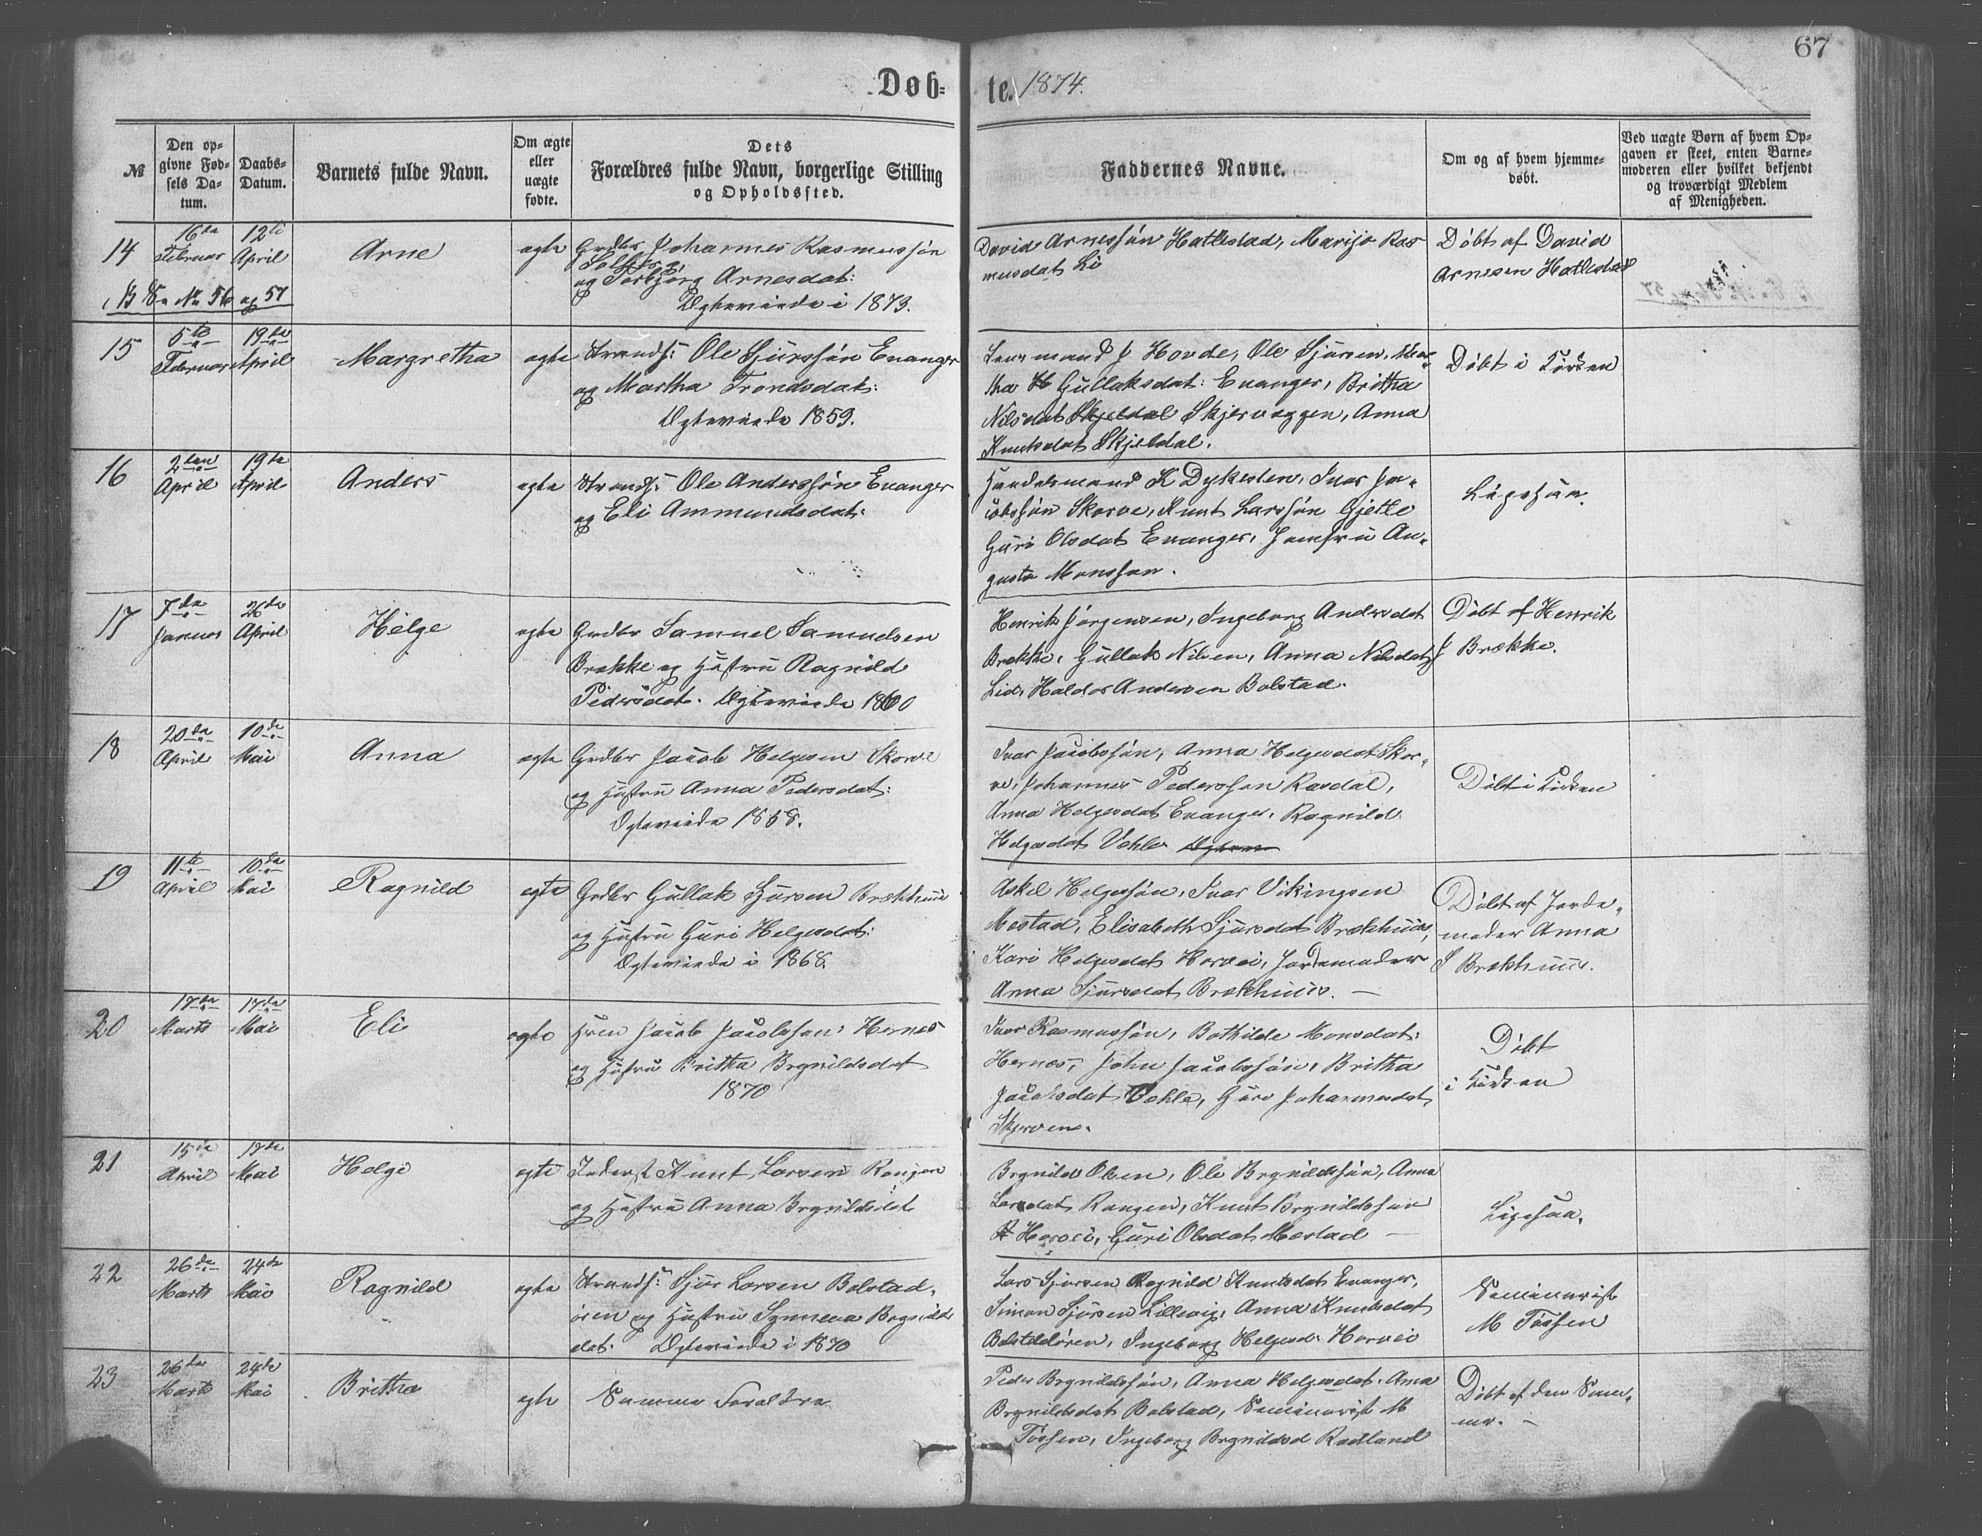 67
Døb= te. 1874.
№
Den op=
givne Fød=
sels Da=
tum.
Daabs=
Datum.
Barnets fulde Navn.
Om ægte
eller
uægte
fødte.
Dets
Forældres fulde Navn, borgerlige Stilling
og Opholdssted.
Faddernes Navne.
Om og af hvem hjemme=
døbt.
Ved uægte Børn af hvem Op=
gaven er skeet, enten Barne=
moderen eller hvilket bekjendt
og troværdigt Medlem
af Menigheden.
14
16de
Februar
12te
April
Arne
ægte
Grdbr Johannes Rasmussøn
Solberg
og Torbjørg Arnesdat:
Ægteviede i 1873.
David Arnessøn Hatlestad, Marijo Ras
musdat Li
Døbt af David
Arnesen Hatlestad
No 56 og 57
15
5te
Februar
19de
April
Margretha
ægte
Strands: Ole Sjurssøn Evanger
og Martha Trondsdat:
Ægteviede 1859.
Lensmand J Hovde, Ole Sjursen, Mar=
tha H Gullaksdat: Evanger, Britha
Nilsdat Skjeldal Skjervaggen, Anna
Knutsdat Skjeldal.
Døbt i Kirken
16
2den
April
19de
April
Anders
ægte
Strands: Ole Anderssøn Evanger
og Eli Ammundsdat:
Handelsmand K Dykesten, Ivar Ja=
cobssøn Skorve, Knut Larssøn Gjelle
Guri Olsdat Evanger, Jomfru Au=
gusta Monsson.
Ligesaa.
17
7de
Januar
26de
April
Helge
ægte
Grdbr Samuel Samuelsen
Brække og Hustru Ragnild
Pedersdat. Ægteviede 1860
Henrik Jørgensen, Ingeborg Andersdat
Brække, Gullak Nilsen, Anna Nilsdat
Lid, Haldor Andersen Bolstad.
Døbt af Henrik
J Brække.
18
20de
April
10de
Mai
Anna
ægte
Grdbr Jacob Helgesen Skorve
og Hustru Anna Pedersdat:
Ægteviede 1858.
Ivar Jacobssøn, Anna Helgesdat Skor=
ve, Johannes Pederssøn Rasdal,
Anna Helgesdat Evanger, Ragnild
Helgesdat Vehle
Døbt i Kirken
19
11te
April
10de
Mai
Ragnild
ægte
Grdbr Gullak Sjursen Brækhuus
og Hustru Guri Helgesdat:
Ægteviede i 1868.
Askel Helgessøn, Ivar Vikingsen
Mestad, Elisabeth Sjursdat Brækhuus,
Kari Helgesdat Horvei, Jordemoder
Anna Sjursdat Brækhuus. —
Døbt af Jorde=
moder Anna
S Brækhuus.
20
17de
Marts
17de
Mai
Eli
ægte
Jacob Jacobssøn Hernes
og Hustru Britha Brynildsdat
1870
Ivar Rasmussøn, Bothilde Monsdat:
Hernes, John Jacobssøn, Britha
Jacobsdat Vehle, Guro Johannesdat
Skjervene.
Døbt
i Kirken
21
15de
April
17de
Mai
Helge
ægte
Inderst Knut Larsen Rongen
og Hustru Anna Brynildsdat
Brynild Olsen, Ole Brynildssøn, Anna
Larsdat Rongen, Knut Brynildssøn
Horvei, Guri Olsdat Mestad —
Ligesaa.
22
26de
Marts
24de
Mai
Ragnild
ægte
Strands: Sjur Larsen Bolstad=
øren og Hustru Synneva Brynilds
dat. Ægteviede i 1870
Lars Sjursen Ragnild Knutsdat Evanger,
Simon Sjursen Lillevig, Anna Knutsdat
Bolstadøren, Ingeborg Helgesd. Horvei
Seminarist
M Tossen
23
26de
Marts
24de
Mai
Britha
ægte
Samme Forældre
Peder Brynildssøn, Anna Helgesdat, Anna
Brynildsdat Bolstad, Seminarist M
Tossen, Ingeborg Brynildsd Radland
Døbt af den Sam=
me. —